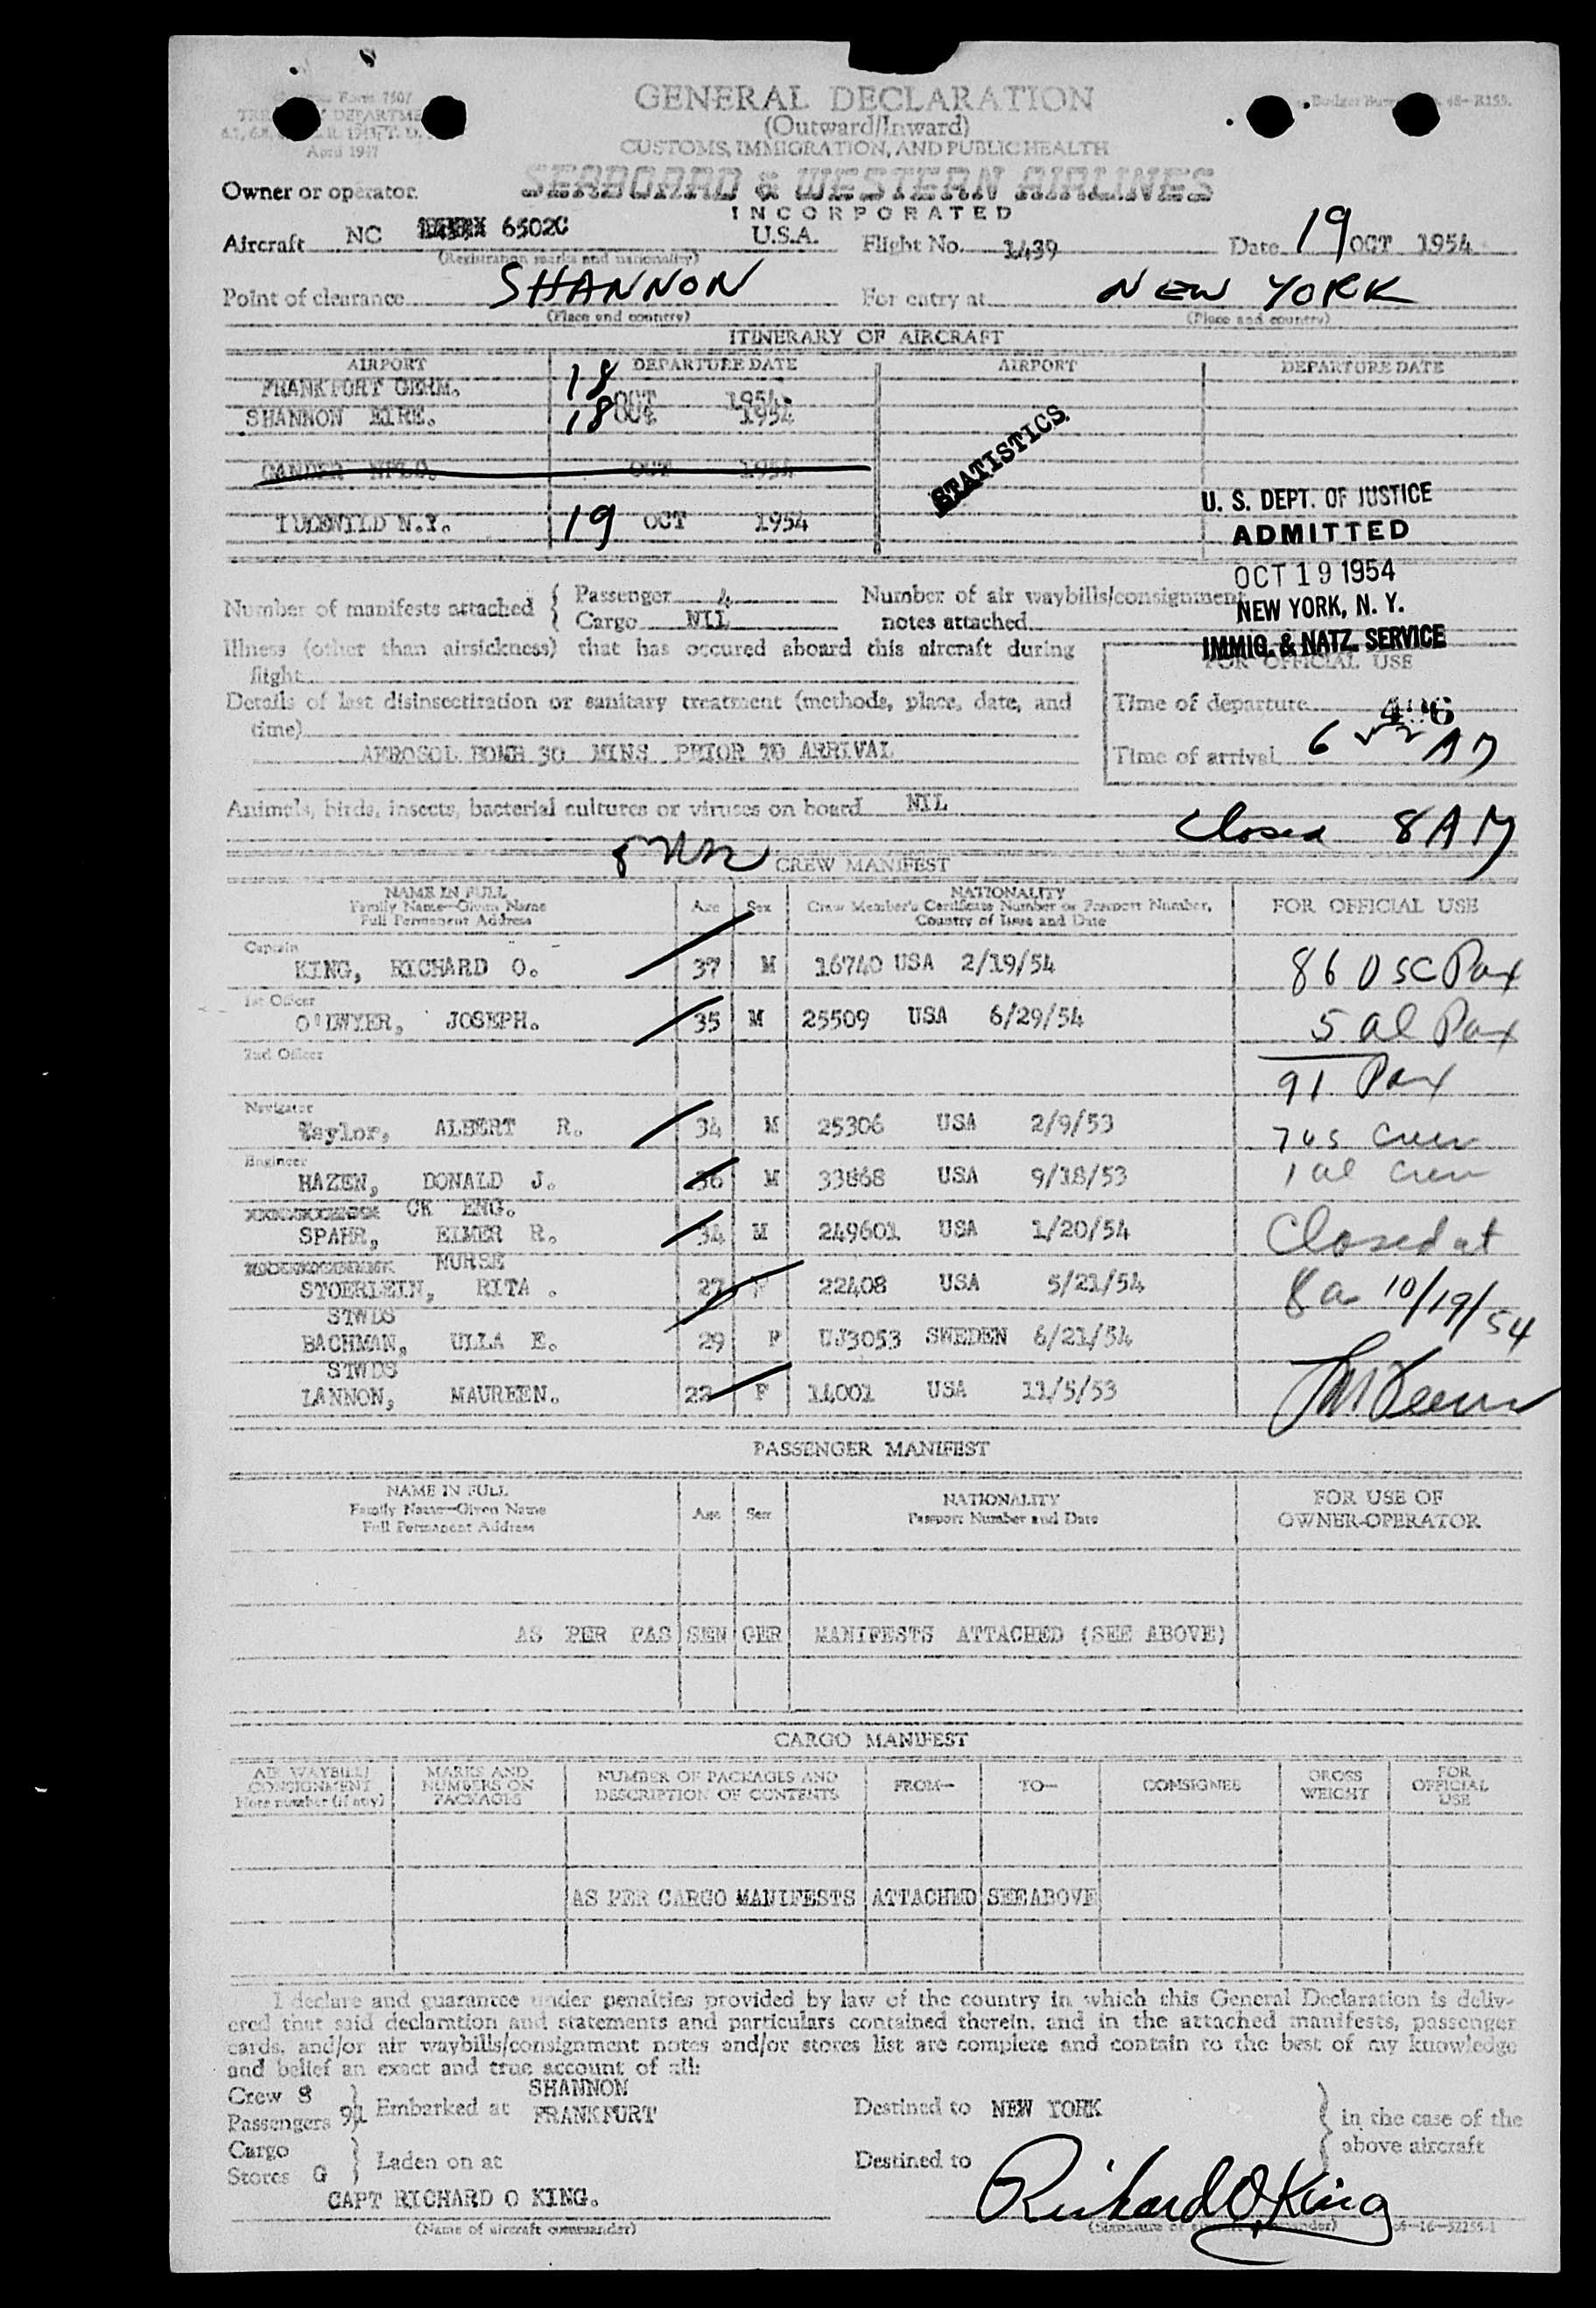 Form 7507
TREASURY DEPARTMENT
April 1947
GENERAL DECLARATION
(Outward/Inward)
CUSTOMS, IMMIGRATION, AND PUBLIC HEALTH
Budget Bureau 48-R159.
Owner or operator
SEABOARD & WESTERN AIRLINES
INCORPORATED
Aircraft NC 6502C U.S.A. Flight No. 1439 Date 19 OCT 1954
(Registration marks and nationality)
Point of clearance SHANNON For entry at NEW YORK
(Place and country) (Place and country)
ITINERARY OF AIRCRAFT
AIRPORT DEPARTURE DATE AIRPORT DEPARTURE DATE
FRANKFORT GERM. 18 OCT 1954
SHANNON EIRE. 18 OCT 1954
GANDER NFLD. OCT 1954
STATISTICS
IDLEWILD N.Y. 19 OCT 1954
U. S. DEPT. OF JUSTICE
ADMITTED
OCT 19 1954
NEW YORK, N. Y.
IMMIG. & NATZ. SERVICE
Number of manifests attached { Passenger 4
Cargo NIL
Number of air waybills/consignment
notes attached
Illness (other than airsickness) that has occured aboard this aircraft during
flight
Details of last disinsectization or sanitary treatment (methods, place, date, and
time)
AEROSOL BOMB 30 MINS PRIOR TO ARRIVAL
FOR OFFICIAL USE
Time of departure
Time of arrival 6 AM
Animals, birds, insects, bacterial cultures or viruses on board NIL
Closed 8 AM
CREW MANIFEST
NAME IN FULL
Family Name—Given Name
Full Permanent Address
Age Sex
NATIONALITY
Crew Member's Certificate Number or Passport Number,
Country of Issue and Date
FOR OFFICIAL USE
Captain
KING, RICHARD O. 37 M 16740 USA 2/19/54 86 USC Pax
1st Officer
O'DWYER, JOSEPH. 35 M 25509 USA 6/29/54 5 al Pax
2nd Officer
91 Pax
Navigator
Taylor, ALBERT R. 34 M 25306 USA 2/9/53 7 us Crew
Engineer
HAZEN, DONALD J. 36 M 33868 USA 9/18/53 1 al Crew
CK ENG.
SPAHR, ELMER R. 34 M 249601 USA 1/20/54 Closed at
NURSE
STOERLEIN, RITA . 27 F 22408 USA 5/21/54 8a 10/19/54
STWDS
BACHMAN, ULLA E. 29 F UJ3053 SWEDEN 6/21/54
STWDS
LANNON, MAUREEN. 22 F 14001 USA 11/5/53
PASSENGER MANIFEST
NAME IN FULL
Family Name—Given Name
Full Permanent Address
Age Sex
NATIONALITY
Passport Number and Date
FOR USE OF
OWNER-OPERATOR
AS PER PASSENGER MANIFESTS ATTACHED (SEE ABOVE)
CARGO MANIFEST
AIR WAYBILL/
CONSIGNMENT
Note number (if any)
MARKS AND
NUMBERS ON
PACKAGES
NUMBER OF PACKAGES AND
DESCRIPTION OF CONTENTS
FROM—
TO—
CONSIGNEE
GROSS
WEIGHT
FOR
OFFICIAL
USE
AS PER CARGO MANIFESTS ATTACHED SEE ABOVE
I declare and guarantee under penalties provided by law of the country in which this General Declaration is deliv-
ered that said declaration and statements and particulars contained therein, and in the attached manifests, passenger
cards, and/or air waybills/consignment notes and/or stores list are complete and contain to the best of my knowledge
and belief an exact and true account of all:
Crew 8
Passengers 91 } Embarked at SHANNON
FRANKFURT
Destined to NEW YORK
Cargo
Stores G } Laden on at
Destined to
} in the case of the
above aircraft
CAPT RICHARD O KING.
Richard O. King
(Name of aircraft commander)
(Signature of aircraft commander)
16—52255-1